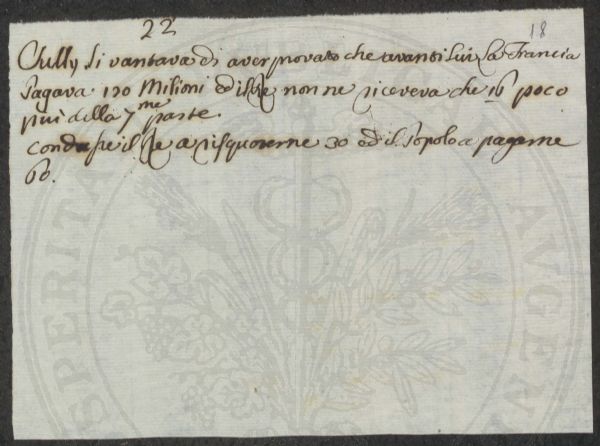 22
18
Sully si vantava di aver provato che avanti lui la Francia
pagava 120 Milioni ed il Re non ne riceveva che 16 poco
più della 7.me parte.
condusse il Re a risquoterne 30 ed il Popolo a pagarne
60.
PROSPERITA
AUGEN